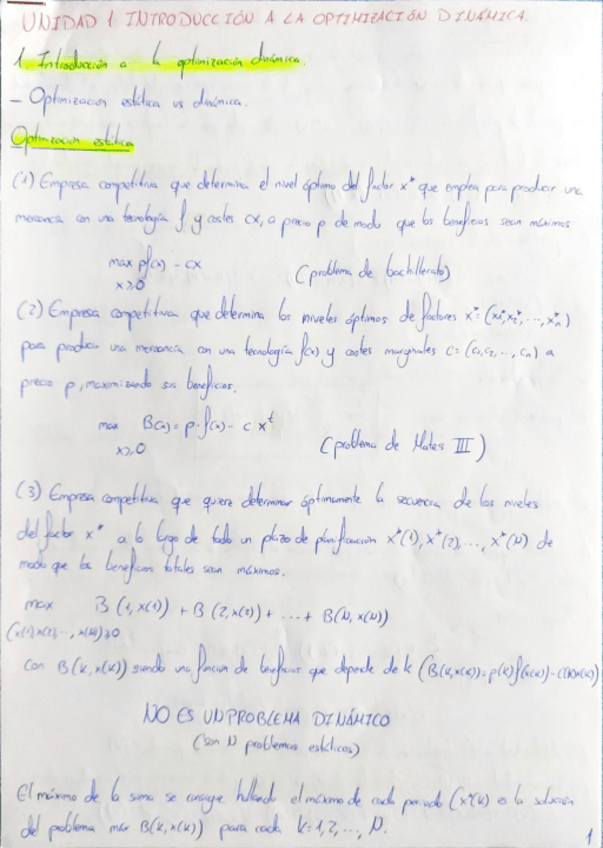 UNIDAD 1 INTRODUCCIÓN A LA OPTIMIZACIÓN DINÁMICA.
1. Introducción a la optimización dinámica.
- Optimización estática vs dinámica.
Optimización estática
(1) Empresa competitiva que determina el nivel óptimo del factor x* que emplea para producir una
mercancía con una tecnología f y costes cx, a precio p de modo que los beneficios sean máximos
max pf(x) - cx (problema de bachillerato)
x≥0
(2) Empresa competitiva que determina los niveles óptimos de factores x* = (x₁*, x₂*, ..., xₙ*)
para producir una mercancía con una tecnología f(x) y costes marginales c = (c₁, c₂, ..., cₙ) a
precio p, maximizando sus beneficios.
max B(x) = p·f(x) - c xᵗ
x≥0 (problema de Mates III)
(3) Empresa competitiva que quiere determinar óptimamente la secuencia de los niveles
del factor x* a lo largo de todo un plazo de planificación x*(1), x*(2), ..., x*(N) de
modo que los beneficios totales sean máximos.
max B(1, x(1)) + B(2, x(2)) + ... + B(N, x(N))
(x(1), x(2), ..., x(N)) ≥ 0
Con B(k, x(k)) siendo una función de beneficios que depende de k (B(k, x(k)) = p(k)f(x(k)) - c(k)x(k))
NO ES UN PROBLEMA DINÁMICO
(son N problemas estáticos)
El máximo de la suma se consigue hallando el máximo de cada periodo (x*(k) es la solución
del problema max B(k, x(k)) para cada k = 1, 2, ..., N.
1